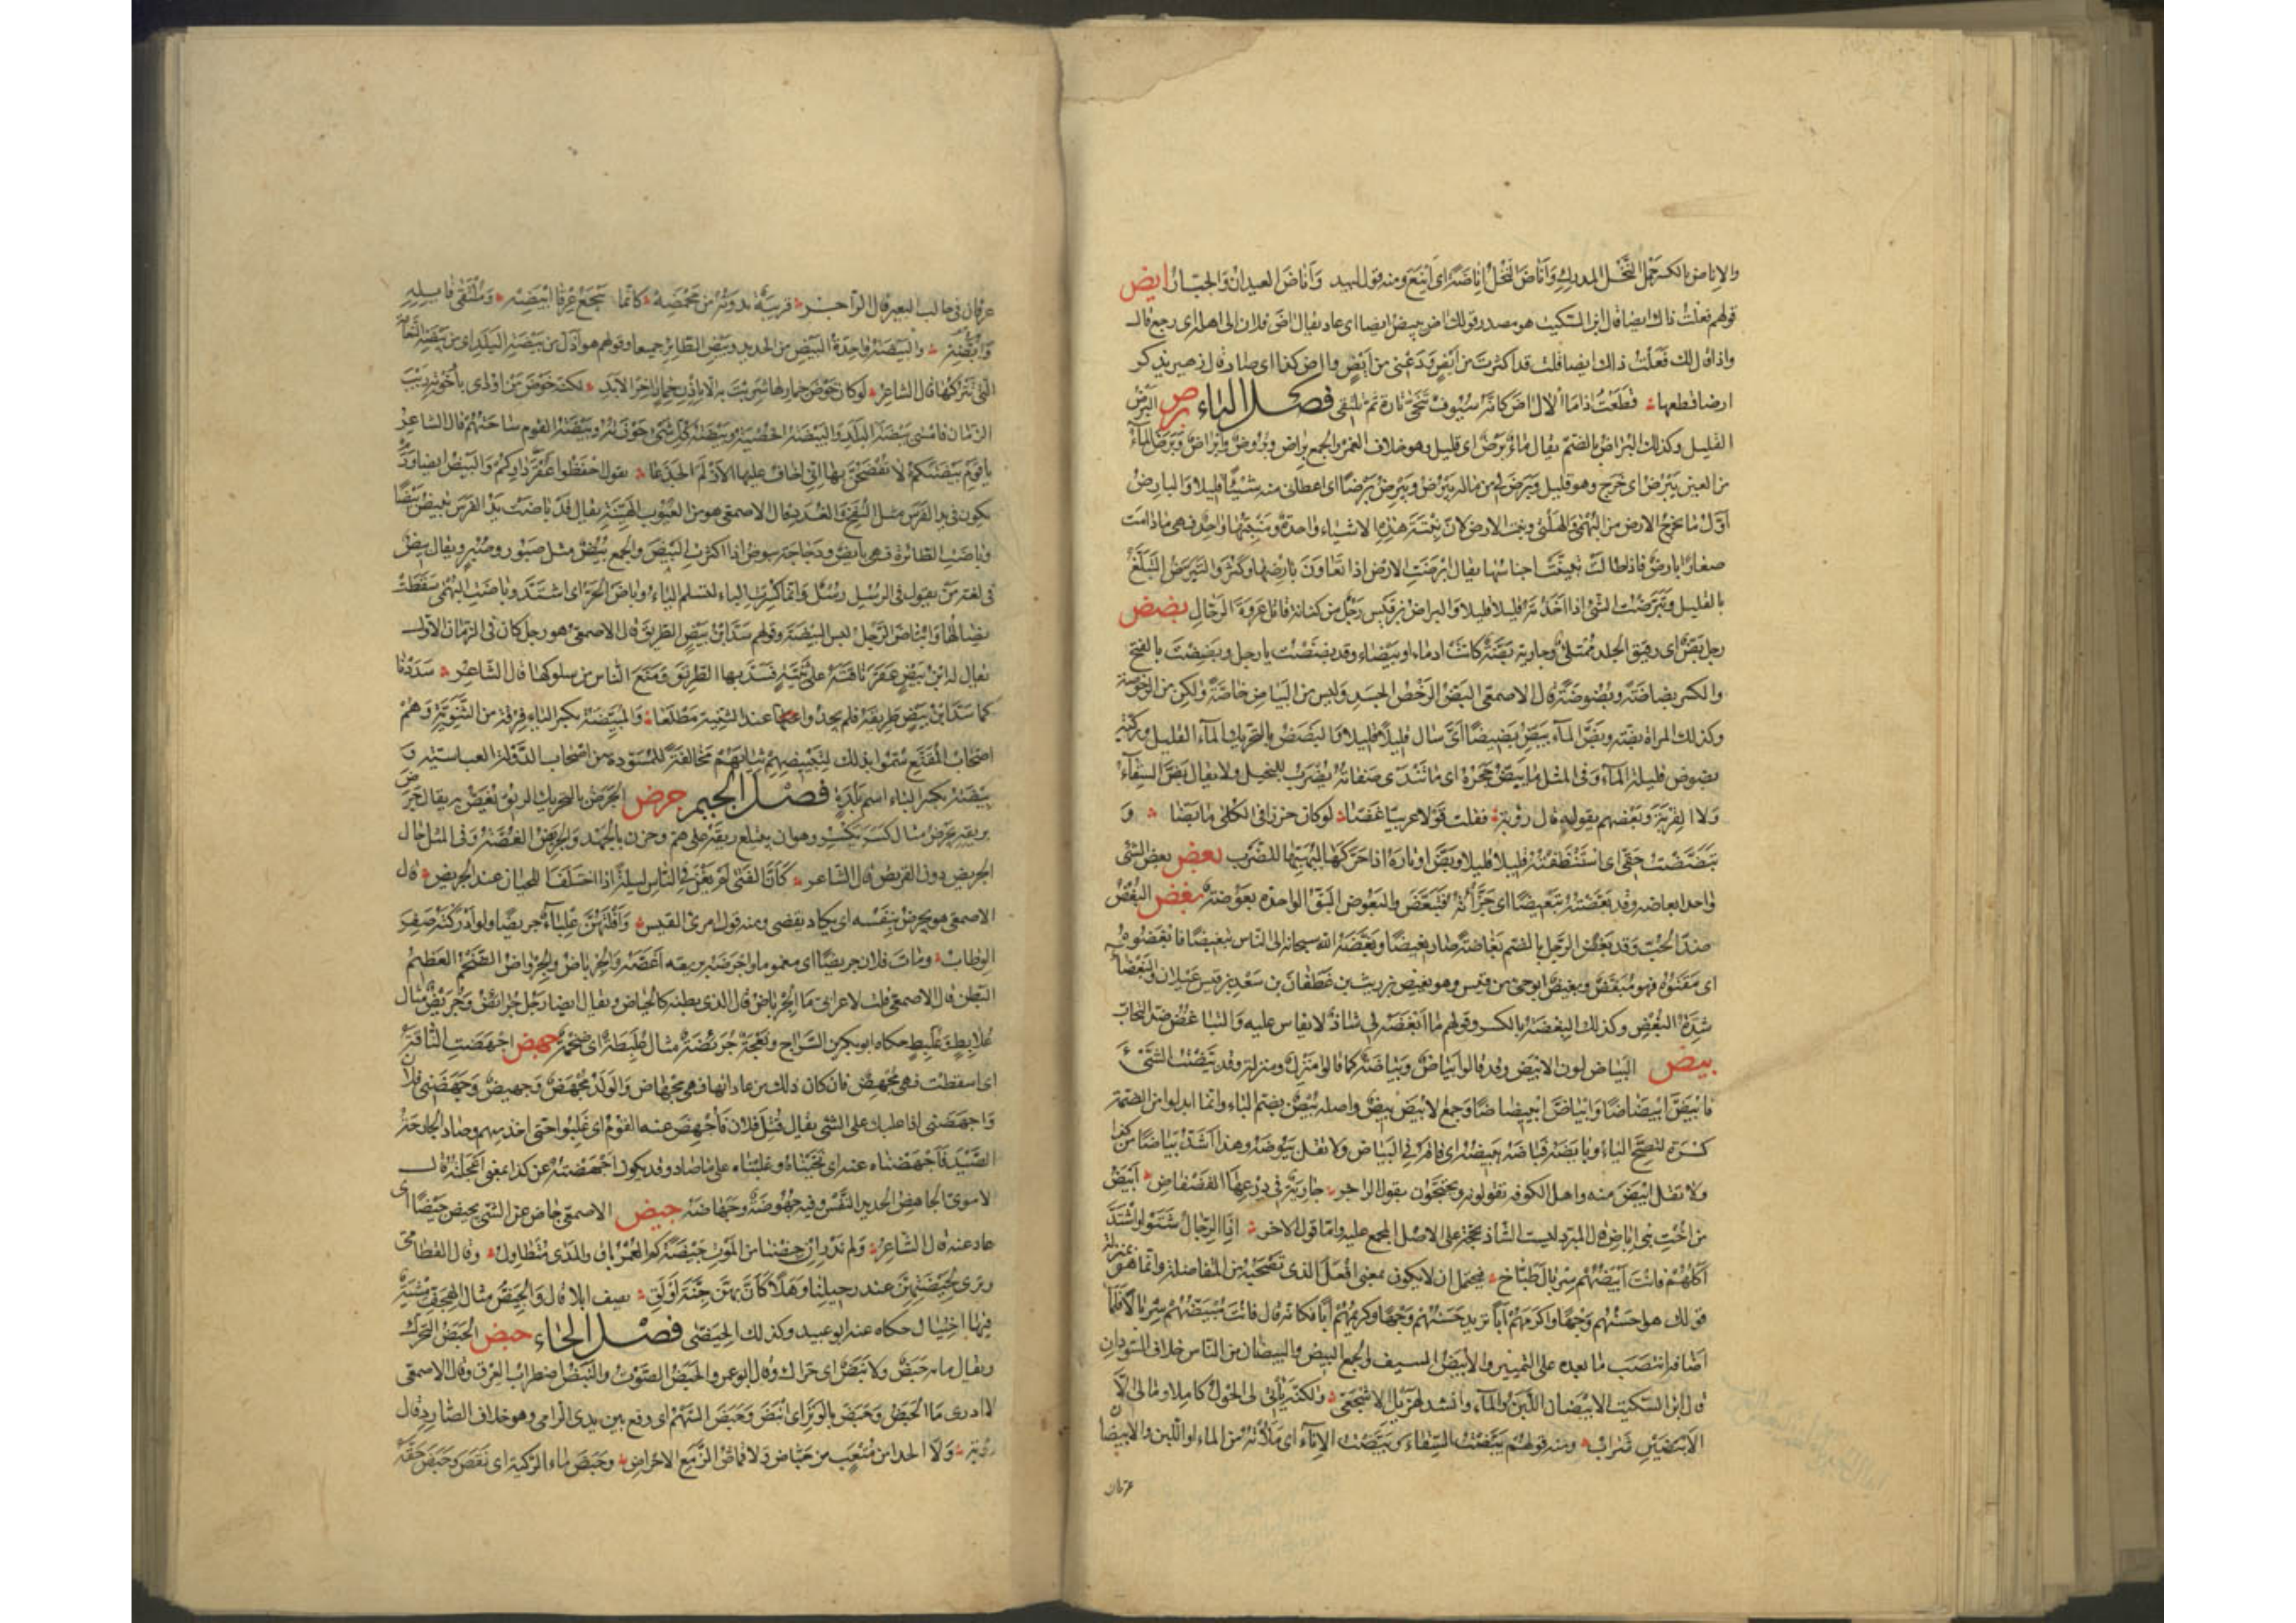 والاناض بالكسر حمل النخل المدرك واناض النخل اناضة اى اينع ومنه قول لبيد واناض العيدان والجبار ايض
قولهم فعلت ذاك ايضا قال ابن السكيت هو مصدر قولك اض يئيض ايضا اى عاد يقال اض فلان الى اهله اى رجع قال
واذا قال لك فعلت ذاك ايضا قلت قد اكثرت من ايض ودعنى من ايض واض كذا اى صار قال زهير يذكر
ارضا قطعها قطعت اذا ما الال اض كانه سيوف تنحى تارة ثم تلتقى فصل الباء برض البرض
القليل وكذلك البراض بالضم يقال ماء برض اى قليل وهو خلاف الغمر والجمع براض وبروض وابراض وبرض الماء
من العين يبرض اى خرج وهو قليل وبرض لى من ماله يبرض ويبرض برضا اى اعطانى منه شيئا قليلا والبارض
اول ما يخرج الارض من البهمى والهلتى وبنت الارض لان نبتة هذه الاشياء واحدة ومنبتها واحد فهى ما دامت
صغارا بارض فاذا طالت تبينت اجناسها يقال ابرضت الارض اذا تعاون بارضها وكثر والتبرض التبلغ
بالقليل وتبرضت الشئ اذا اخذته قليلا قليلا والبراض بن قيس رجل من كنانة قاتل عروة الرحال بضض
رجل بض اى رقيق الجلد ممتلئ وجارية بضة كانت ادماء او بيضاء وقد بضضت يا رجل وبضضت بالفتح
والكسر بضاضة وبضوضة قال الاصمعى البض الرخص الجسد وليس من البياض خاصة ولكن من الرخوصة
وكذلك المراة بضة وبض الماء يبض بضيضا اى سال قليلا قليلا والبضض بالتحريك الماء القليل وركية
بضوض قليلة الماء وفى المثل ما يبض حجره اى ما تندى صفاته يضرب للبخيل ولا يقال بض السقاء
ولا القربة وبعضهم يقوله قال رؤبة فقلت قولا عربيا غضا لو كان خرزا فى الكلى ما بضا و
تبضضت حقى اى استنظفته قليلا قليلا وبض اوتاره اذا حركها ليهيئها للضرب بعض بعض الشئ
واحد ابعاضه وقد بعضته تبعيضا اى جزأته فتبعض والبعوض البق الواحدة بعوضة بغض البغض
ضد الحب وقد بغض الرجل بالضم بغاضة صار بغيضا وبغضه الله سبحانه الى الناس تبغيضا فابغضوه
اى مقتوه فهو مبغض وبغيض ابو حى من قيس وهو بغيض بن ريث بن غطفان بن سعد بن قيس عيلان والبغضاء
شدة البغض وكذلك البغضة بالكسر وقولهم ما ابغضه لى شاذ لا يقاس عليه والتباغض ضد التحاب
بيض البياض لون الابيض وقد قالوا بياض وبياضة كما قالوا منزل ومنزلة وقد بيضت الشئ
فابيض ابيضاضا وابياض ابييضاضا وجمع الابيض بيض واصله بيض بضم الباء وانما ابدلوا من الضمة
كسرة لتصح الياء وبايضه فباضه يبيضه اى فاقه فى البياض ولا تقل يبوضه وهذا اشد بياضا من كذا
ولا تقل ابيض منه واهل الكوفة تقولونه ويحتجون بقول الراجز جارية فى درعها الفضفاض ابيض
من اخت بنى اباض قال المبرد ليس الشاذ بحجة على الاصل المجمع عليه واما قول الاخر اذا الرجال شتوا واشتد
اكلهم فانت ابيضهم سربال طباخ فيحتمل ان لا يكون بمعنى افعل الذى تصحبه من للمفاضلة وانما هو بمنزلة
قولك هو احسنهم وجها واكرمهم ابا تريد حسنهم وجها وكريمهم ابا فكانه قال فانت مبيضهم سربالا فلما
اضافه انتصب ما بعده على التمييز والابيض السيف والجمع البيض والبيضان من الناس خلاف السودان
قال ابن السكيت الابيضان اللبن والماء وانشد لهزيل الاشجعى ولكنه ياتى لى الحول كاملا ومالى الا
الابيضين شراب ومنه قولهم بيضت السقاء وبيضت الاناء اى ملأته من الماء او اللبن والابيضان
عرقان
عرقان فى حالب البعير قال الراجز قريبة ندوته من محمضه كانما ييجع عرقا ابيضه وملتقى فائله
وابضه والبيضة واحدة البيض من الحديد وبيض الطائر جميعا وقولهم هو اذل من بيضة البلد اى من بيضة النعام
التى تتركها قال الشاعر لو كان حوض حمار ما شربت به الا باذن حمار اخر الابد لكنه حوض من اودى باخوته ريب
الزمان فامسى بيضة البلد والبيضة الخصية وبيضة كل شئ حوزته وبيضة القوم ساحتهم قال الشاعر
يا قوم بيضتكم لا تفضحن بها انى اخاف عليها الازلم الجذعا يقول احفظوا عقر داركم والبيض ايضا ورم
يكون فى يد الفرس مثل النفخ والغدد قال الاصمعى هو من العيوب الهينة يقال قد باضت يد الفرس تبيض بيضا
وباضت الطائرة فهى بايض ودجاجة بيوض اذا اكثرت البيض والجمع بيض مثل صبور وصبر ويقال بيض
فى لغة من يقول فى الرسل رسل وانما كسرت الباء لتسلم الياء وباض الحر اى اشتد وباضت البهمى سقطت
نصالها وابتاض الرجل لبس البيضة وقولهم سد ابن بيض الطريق قال الاصمعى هو رجل كان فى الزمان الاول
يقال له ابن بيض عقر ناقته على ثنية فسد بها الطريق ومنع الناس من سلوكها قال الشاعر سددنا
كما سد ابن بيض طريقه فلم يجدوا عند الثنية مطلعا والمبيضة بكسر الياء فرقة من الثنوية وهم
اصحاب المقنع سموا بذلك لتبييضهم ثيابهم مخالفة للمسودة من اصحاب الدولة العباسية و
بيضة بكسر الباء اسم بلدة فصل الجيم جرض الجرض بالتحريك الريق يغص به يقال جرض
بريقه يجرض مثال كسر يكسر وهو ان يبتلع ريقه على هم وحزن بالجهد والجريض الغصة وفى المثل حال
الجريض دون القريض قال الشاعر كان الفتى لم يغن فى الناس ليلة اذا اختلف اللحيان عند الجريض قال
الاصمعى هو يجرض بنفسه اى يكاد يقضى ومنه قول امرئ القيس وافلتهن علباء جريضا ولو ادركنه صفر
الوطاب ومات فلان جريضا اى مغموما واجرضه بريقه اغصه والجرياض والجرواض الضخم العظيم
البطن قال الاصمعى قلت لاعرابى ما الجرياض قال الذى بطنه كالحياض ويقال ايضا رجل جرائض وجرئض مثال
علابط وعلبط حكاه ابو بكر بن السراج ونعجة جرئضة مثال علبطة اى ضخمة جهض اجهضت الناقة
اى اسقطت فهى مجهض فان كان ذلك من عادتها فهى مجهاض والولد مجهض وجهيض وجهضنى فلان
واجهضنى اذا غلبك على الشئ يقال قتل فلان فاجهض عنه القوم اى غلبوا حتى اخذ منهم وصاد الجارح
الصيد فاجهضناه عنه اى نحيناه وغلبناه على ما صاد وقد يكون اجهضته عن كذا بمعنى اعجلته قال
الاموى الجاهض الحديد النفس وفيه جهوضة وجهاضة جيض الاصمعى جاض عن الشئ يجيض جيضا اى
حاد عنه قال الشاعر ولم ندر ان جضنا من الموت جيضة كم العمر باق والمدى متطاول وقال القطامى
وترى لجيضتهن عند رحيلنا وهلا كان بهن جنة اولق يصف ابلا قال والجيض مثال الهجف مشية
فيها اختيال حكاه عنه ابو عبيد وكذلك الجيضى فصل الحاء حبض الحبض التحرك
ويقال ما به حبض ولا نبض اى حراك وقال ابو عمرو الحبض الصوت والنبض اضطراب العرق وقال الاصمعى
لا ادرى ما الحبض وحبض بالوتر اى انبض وحبض السهم اى وقع بين يدى الرامى وهو خلاف الصارد قال
رؤبة ولا الجدا من متعب حباض ولا قماش الزمع الاحراض وحبض ماء الركية اى نقص وحبض حقه